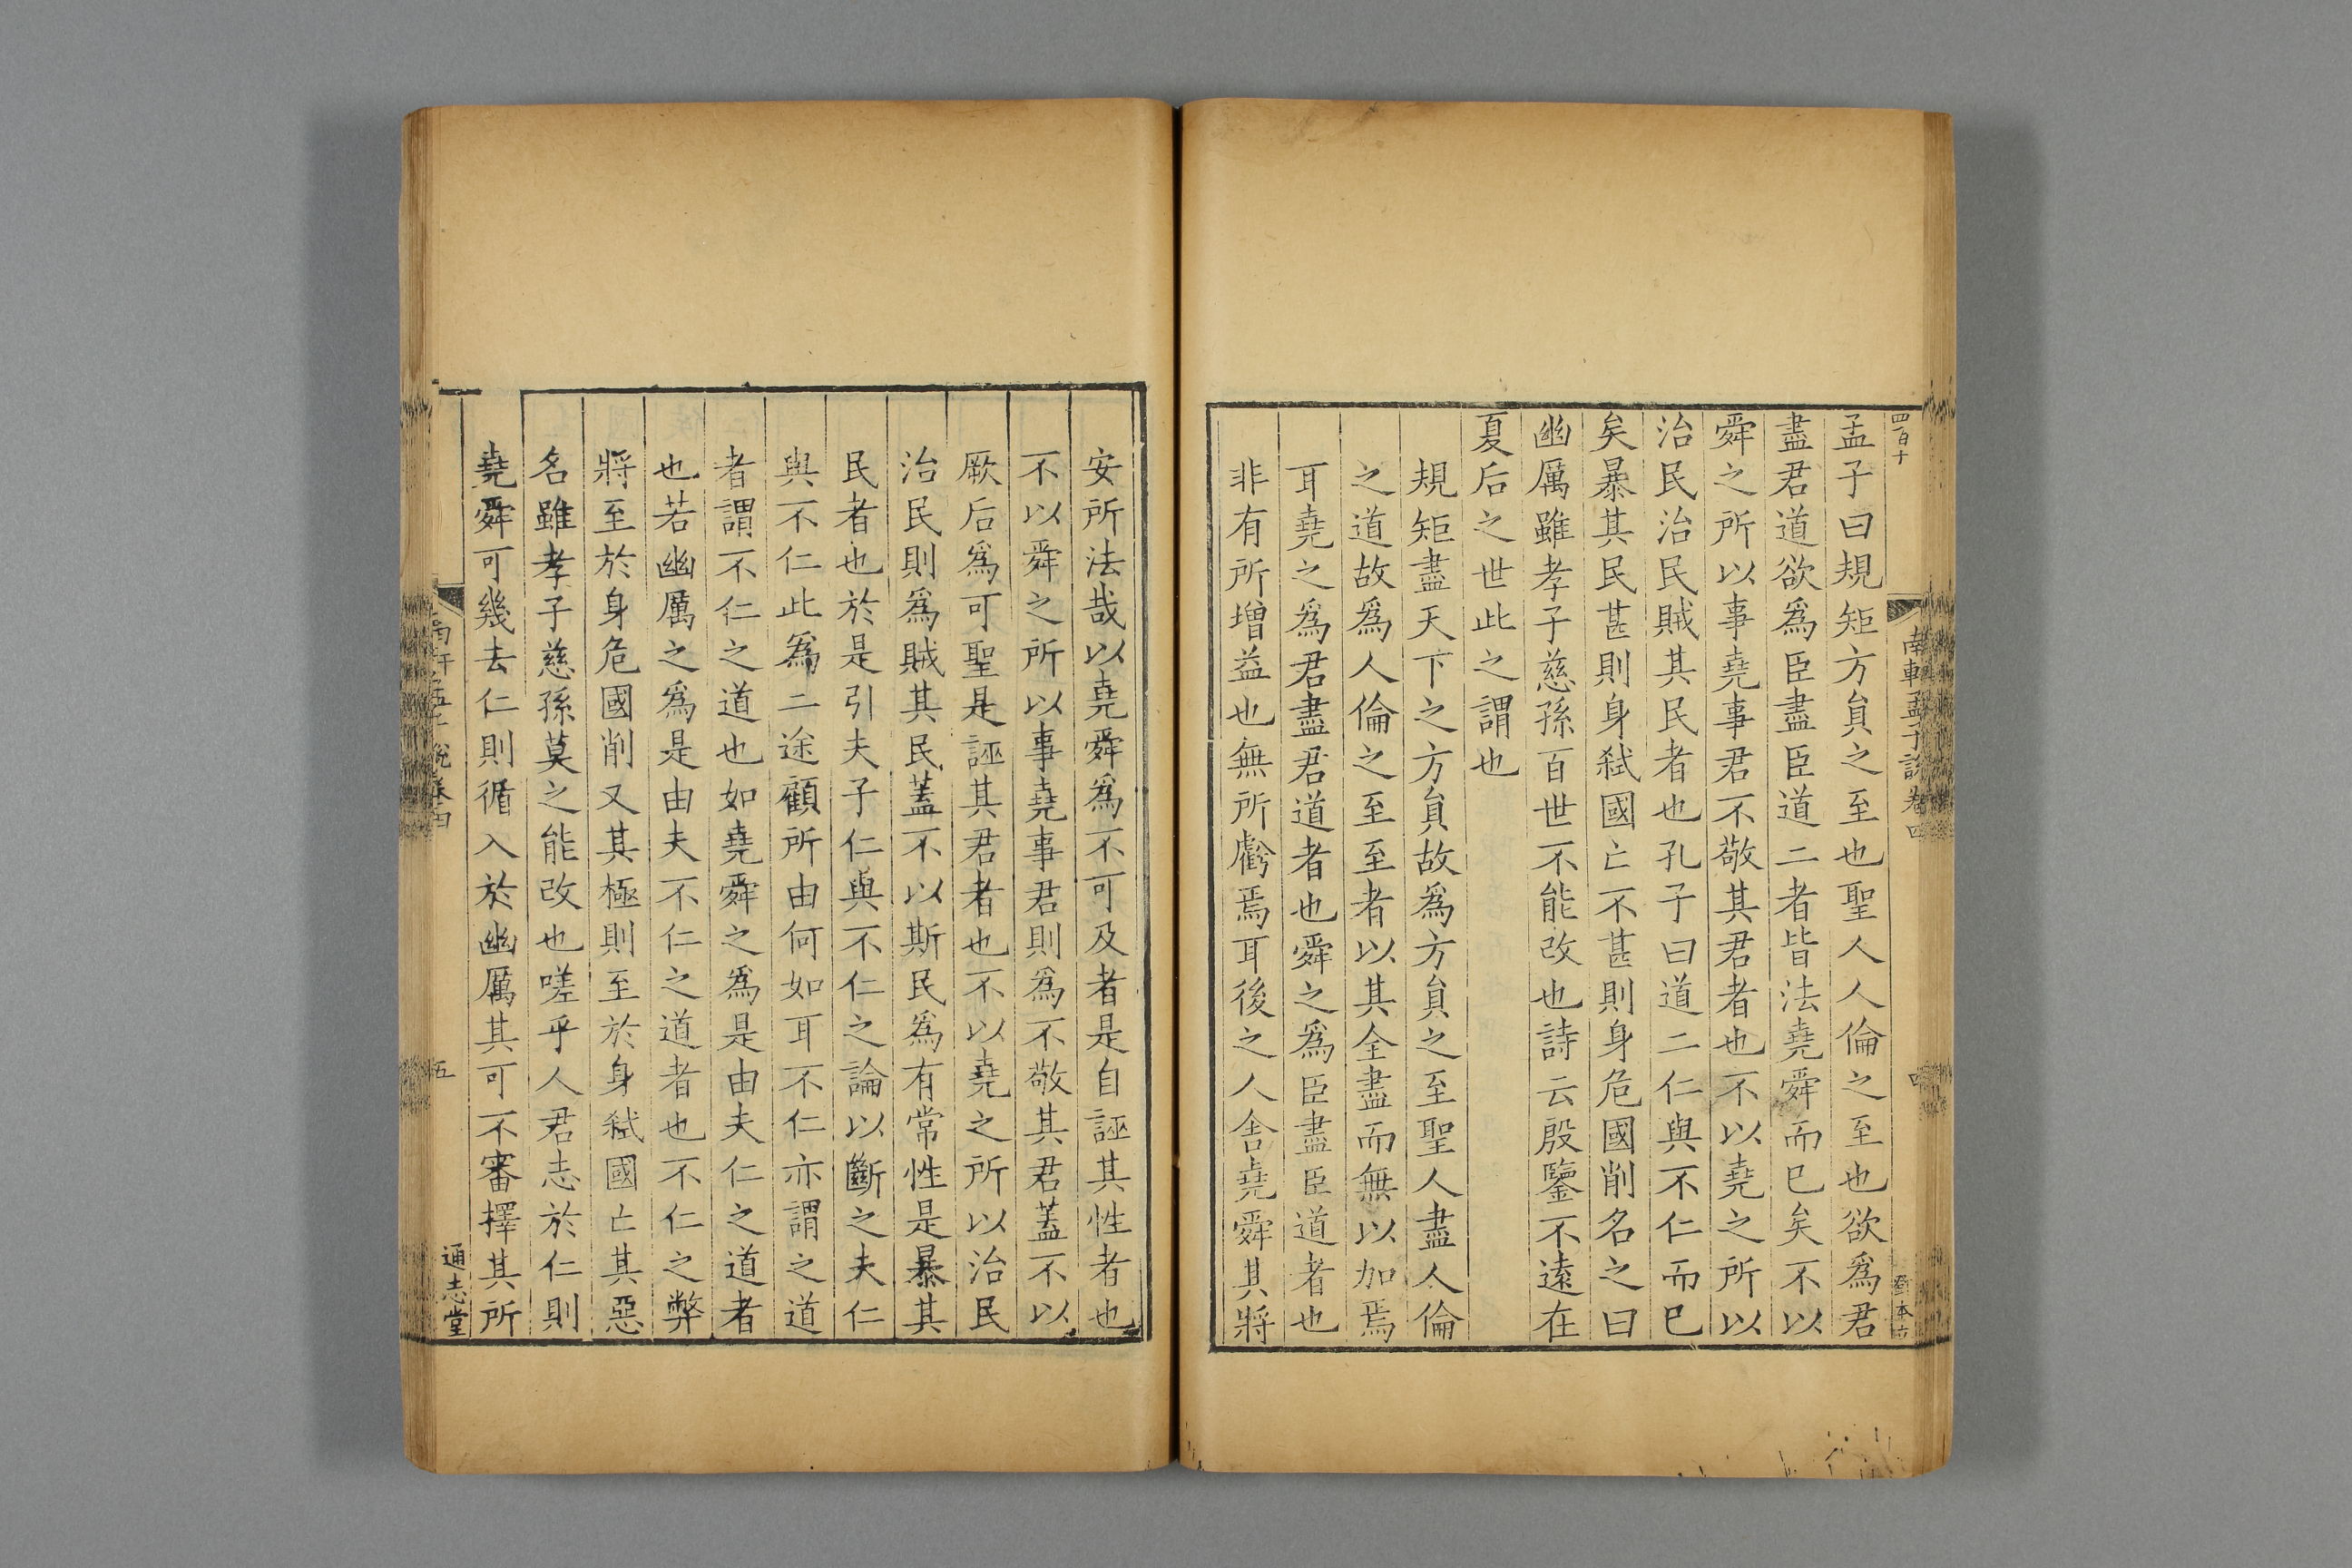 四百十
孟子曰規矩方員之至也聖人人倫之至也欲爲君
盡君道欲爲臣盡臣道二者皆法堯舜而巳矣不以
舜之所以事堯事君不敬其君者也不以堯之所以
治民治民賊其民者也孔子曰道二仁與不仁而巳
矣暴其民甚則身弑國亡不甚則身危國削名之曰
幽厲雖孝子慈孫百世不能改也詩云殷鑒不遠在
夏后之世此之謂也
規矩盡天下之方員故爲方員之至聖人盡人倫
之道故爲人倫之至至者以其全盡而無以加焉
耳堯之爲君盡君道者也舜之爲臣盡臣道者也
非有所增益也無所虧焉耳後之人舍堯舜其將
南軒孟子說卷四
四
安所法哉以堯舜爲不可及者是自誣其性者也
不以舜之所以事堯事君則爲不敬其君蓋不以
厥后爲可聖是誣其君者也不以堯之所以治民
治民則爲賊其民蓋不以斯民爲有常性是暴其
民者也於是引夫子仁與不仁之論以斷之夫仁
與不仁此爲二途顧所由何如耳不仁亦謂之道
者謂不仁之道也如堯舜之爲是由夫仁之道者
也若幽厲之爲是由夫不仁之道者也不仁之弊
將至於身危國削又其極則至於身弑國亡其惡
名雖孝子慈孫莫之能改也嗟乎人君志於仁則
堯舜可幾去仁則循入於幽厲其可不審擇其所
南軒孟子說卷四
五
通志堂